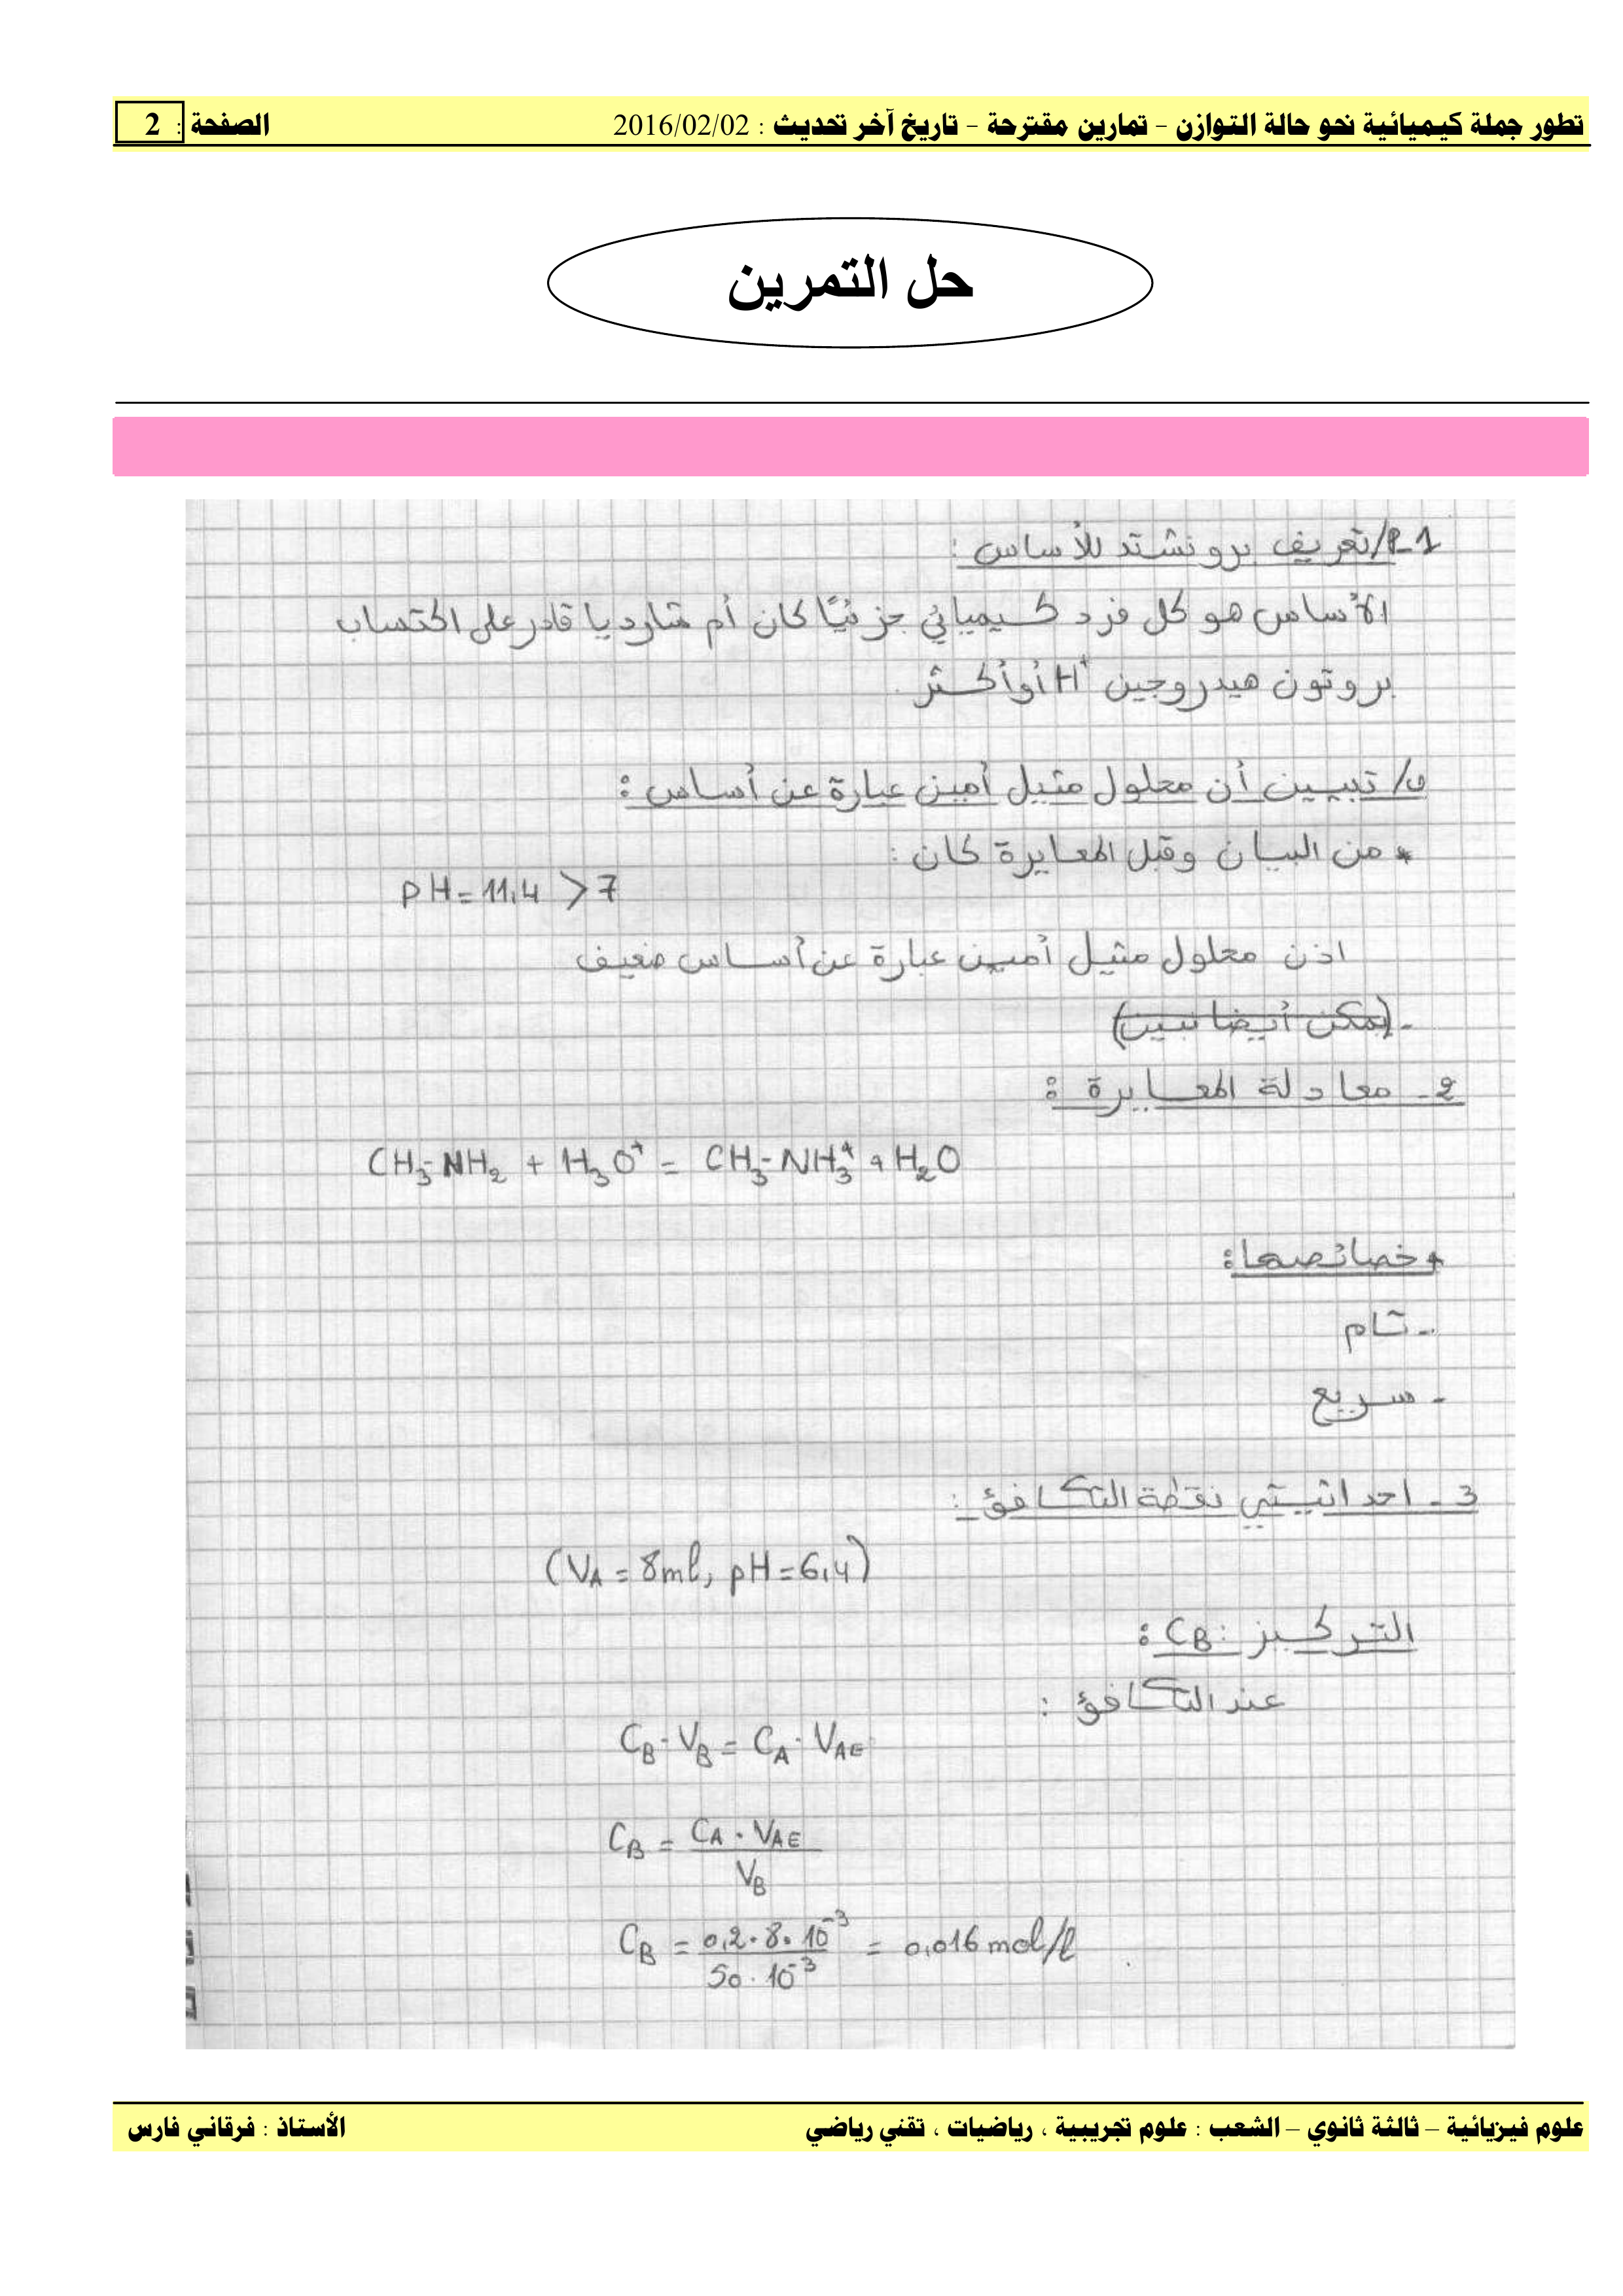 تطور جملة كيميائية نحو حالة التوازن – تمارين مقترحة – تاريخ آخر تحديث : 2016/02/02 الصفحة : 2
حل التمرين
1-أ/ تعريف برونشتد للأساس :
الأساس هو كل فرد كيميائي جزئيًا كان أم شارديا قادر على اكتساب
بروتون هيدروجين H⁺ أو أكثر .
ب/ تبيين أن محلول مثيل أمين عبارة عن أساس :
* من البيان وقبل المعايرة كان :
pH = 11,4 > 7
اذن محلول مثيل أمين عبارة عن أساس ضعيف
- (يمكن أيضا نبين)
2- معادلة المعايرة :
CH₃-NH₂ + H₃O⁺ = CH₃-NH₃⁺ + H₂O
* خصائصها :
- تام
- سريع
3 - احداثيتي نقطة التكافؤ :
(V_A = 8ml, pH = 6,4)
التركيز : C_B :
عند التكافؤ :
C_B · V_B = C_A · V_AE
C_B = C_A · V_AE / V_B
C_B = 0,2 · 8 · 10⁻³ / 50 · 10⁻³ = 0,016 mol/l
علوم فيزيائية – ثالثة ثانوي – الشعب : علوم تجريبية ، رياضيات ، تقني رياضي الأستاذ : فرقاني فارس